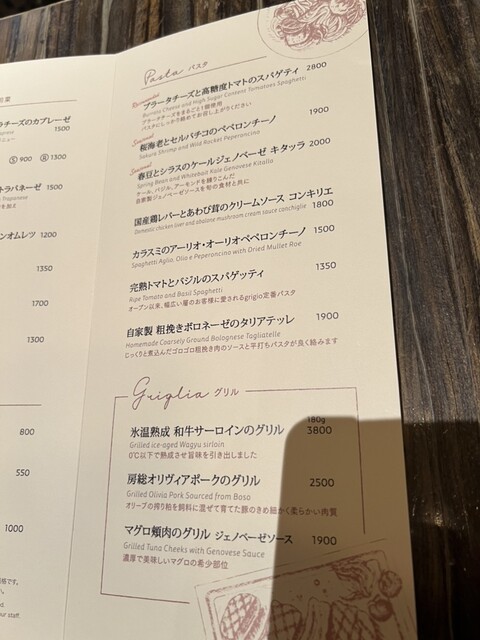 チーズのカプレーゼ
1500
Ⓢ 900 Ⓡ 1300
トラパネーゼ 1500
ンオムレツ 1200
1350
1700
1300
800
550
1000
Pasta パスタ
Recommended
ブラータチーズと高糖度トマトのスパゲティ 2800
Burrata Cheese and High Sugar Content Tomatoes Spaghetti
ブラータチーズをまるごと1個使用
パスタにしっかり絡めてお召し上がりください
Seasonal
桜海老とセルバチコのペペロンチーノ 1900
Sakura Shrimp and Wild Rocket Peperoncino
Seasonal
春豆とシラスのケールジェノベーゼ キタッラ 2000
Spring Bean and Whitebait Kale Genovese Kitalla
ケール、バジル、アーモンドを練りこんだ
自家製ジェノベーゼソースを旬の食材と共に
国産鶏レバーとあわび茸のクリームソース コンキリエ
Domestic chicken liver and abalone mushroom cream sauce conchiglie 1800
カラスミのアーリオ・オーリオペペロンチーノ 1500
Spaghetti Aglio, Olio e Peperoncino with Dried Mullet Roe
完熟トマトとバジルのスパゲッティ 1350
Ripe Tomato and Basil Spaghetti
オープン以来、幅広い層のお客様に愛されるgrigio定番パスタ
自家製 粗挽きボロネーゼのタリアテッレ 1900
Homemade Coarsely Ground Bolognese Tagliatelle
じっくりと煮込んだゴロゴロ粗挽き肉のソースと平打ちパスタが良く絡みます
Griglia グリル
180g
氷温熟成 和牛サーロインのグリル 3800
Grilled ice-aged Wagyu sirloin
0℃以下で熟成させ旨味を引き出しました
房総オリヴィアポークのグリル 2500
Grilled Olivia Pork Sourced from Boso
オリーブの搾り粕を飼料に混ぜて育てた豚のきめ細かく柔らかい肉質
マグロ頬肉のグリル ジェノベーゼソース 1900
Grilled Tuna Cheeks with Genovese Sauce
濃厚で美味しいマグロの希少部位